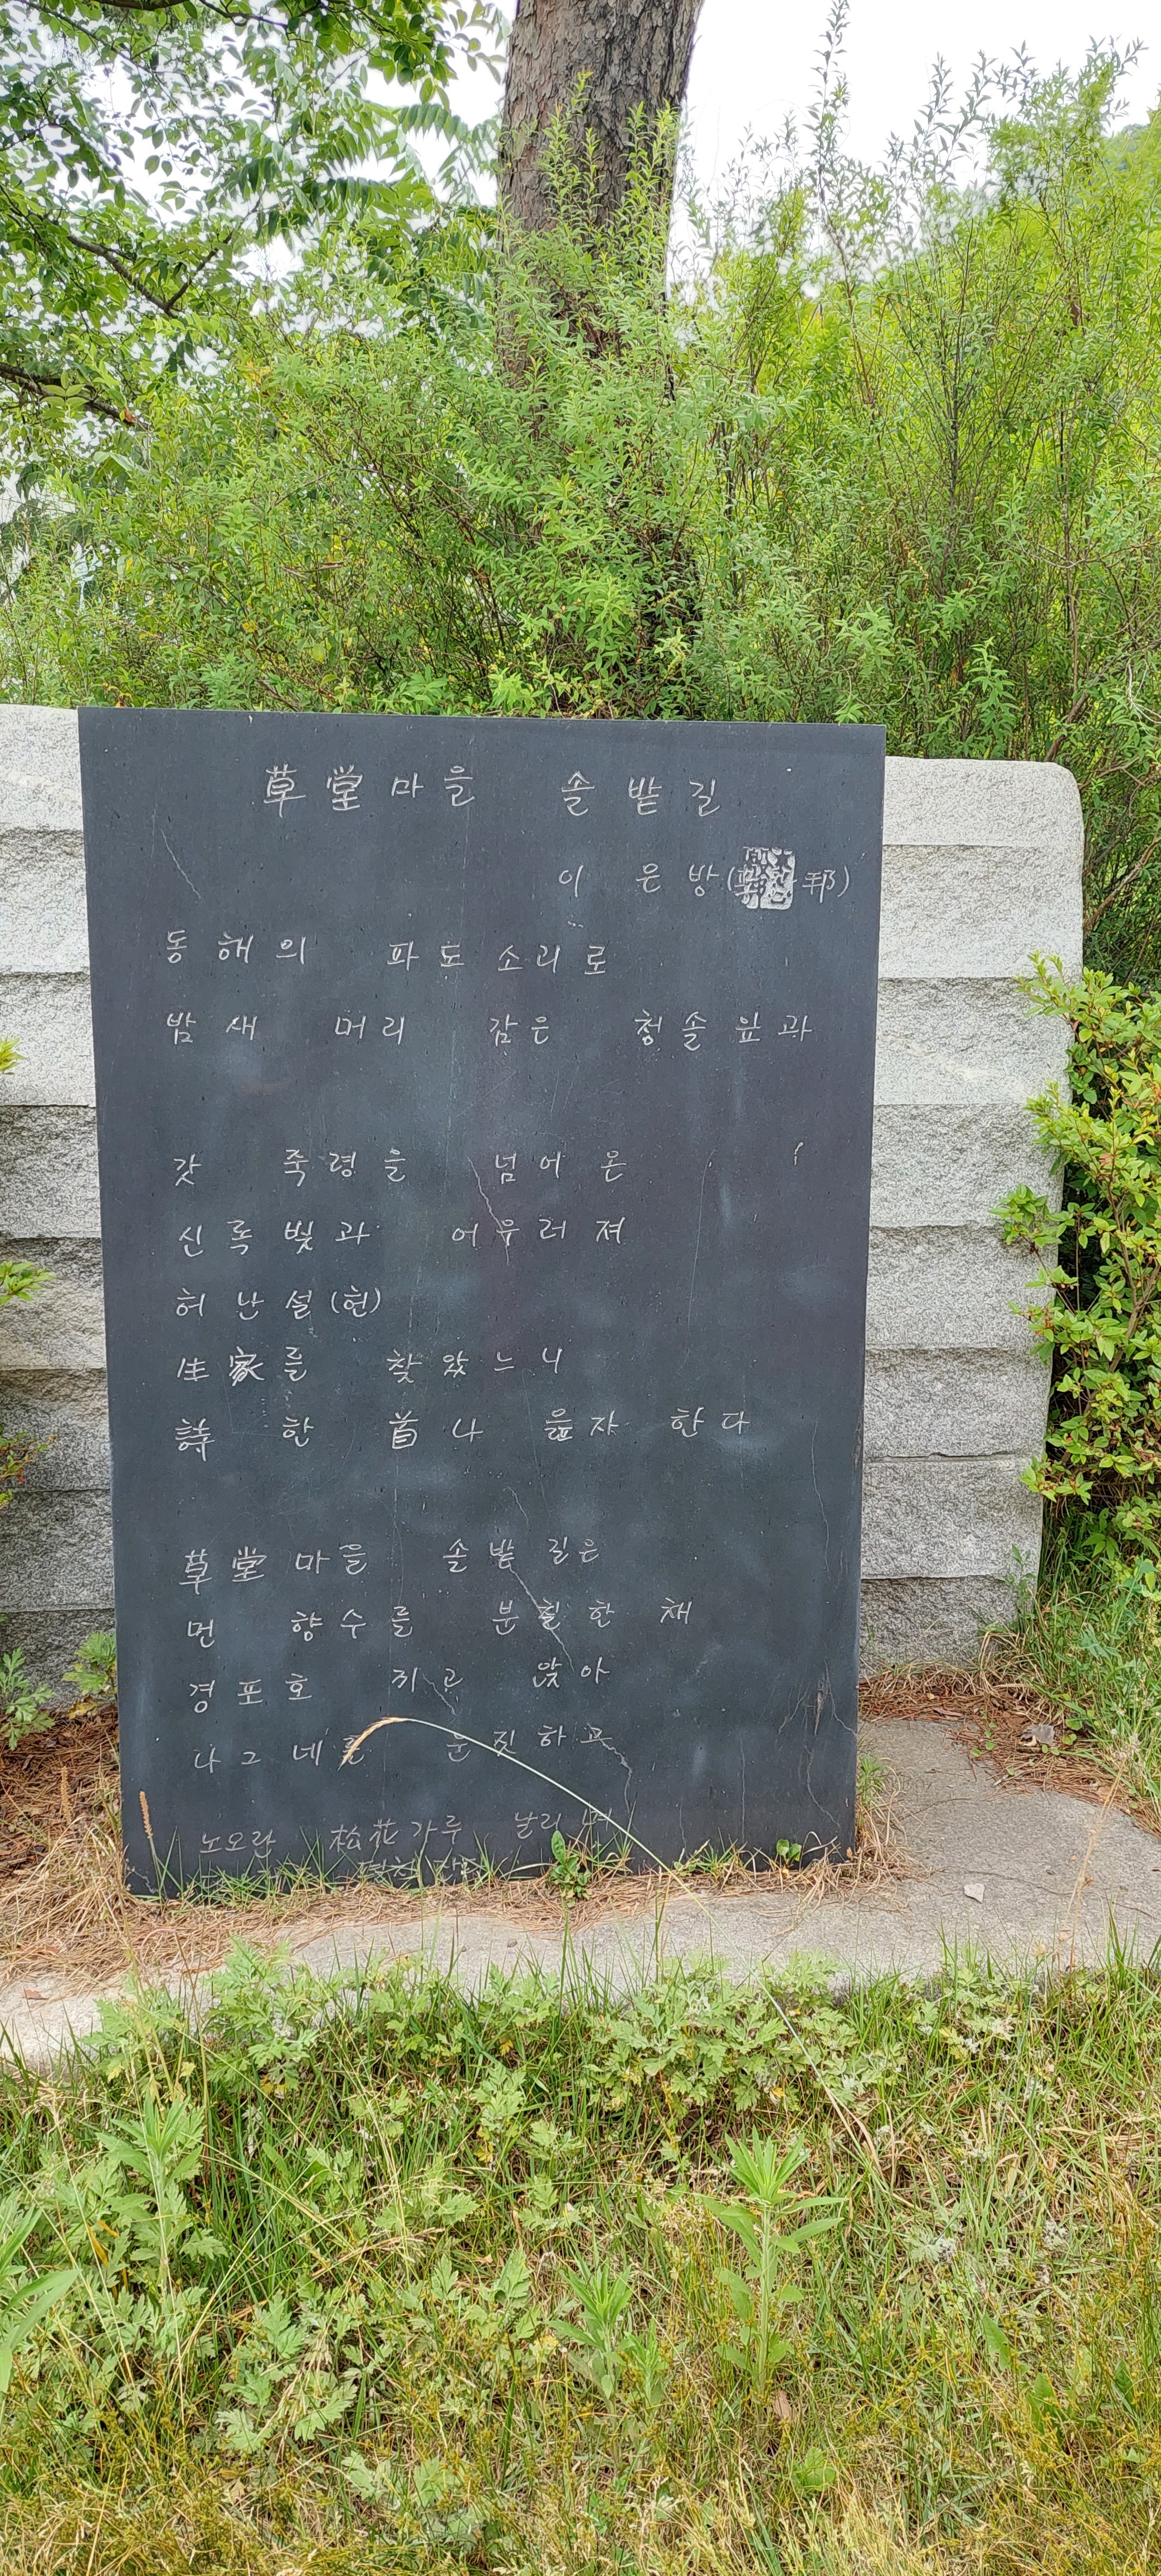 草堂마을 솔밭길
이 은방( 邦)
동해의 파도소리로
밤새 머리 감은 청솔잎과
갓 죽령을 넘어 온
신록빛과 어우러져
허난설(헌)
生家를 찾았느니
詩 한 首나 읊자 한다
草堂마을 솔밭길은
먼 향수를 분칠한 채
경포호 끼고 앉아
나그네를 눈짓하고
노오란 松花가루 날리며